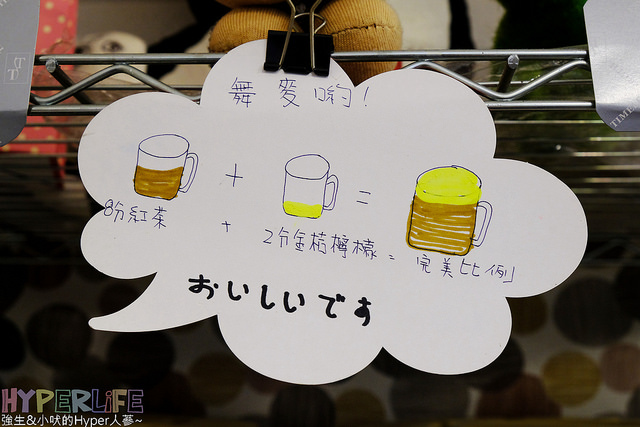 舞麥啲!
+ =
8分紅茶 + 2分金桔檸檬 = 完美比例
おいしいです
TIME
HYPERLiFE
強生&小吠的Hyper人蔘~